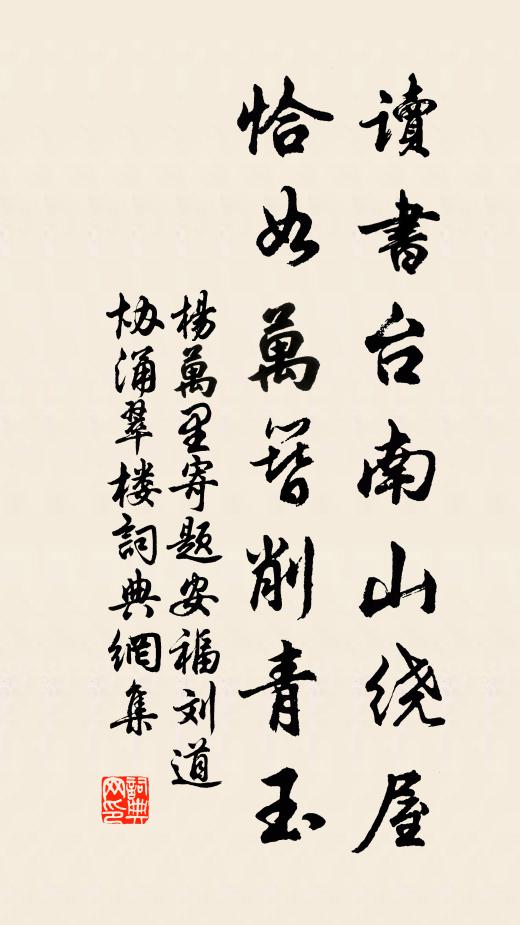 讀書台南山绕屋
恰如萬簪削青玉
楊萬里寄题安福刘道
协涌翠楼詞典網集
詞典
网印